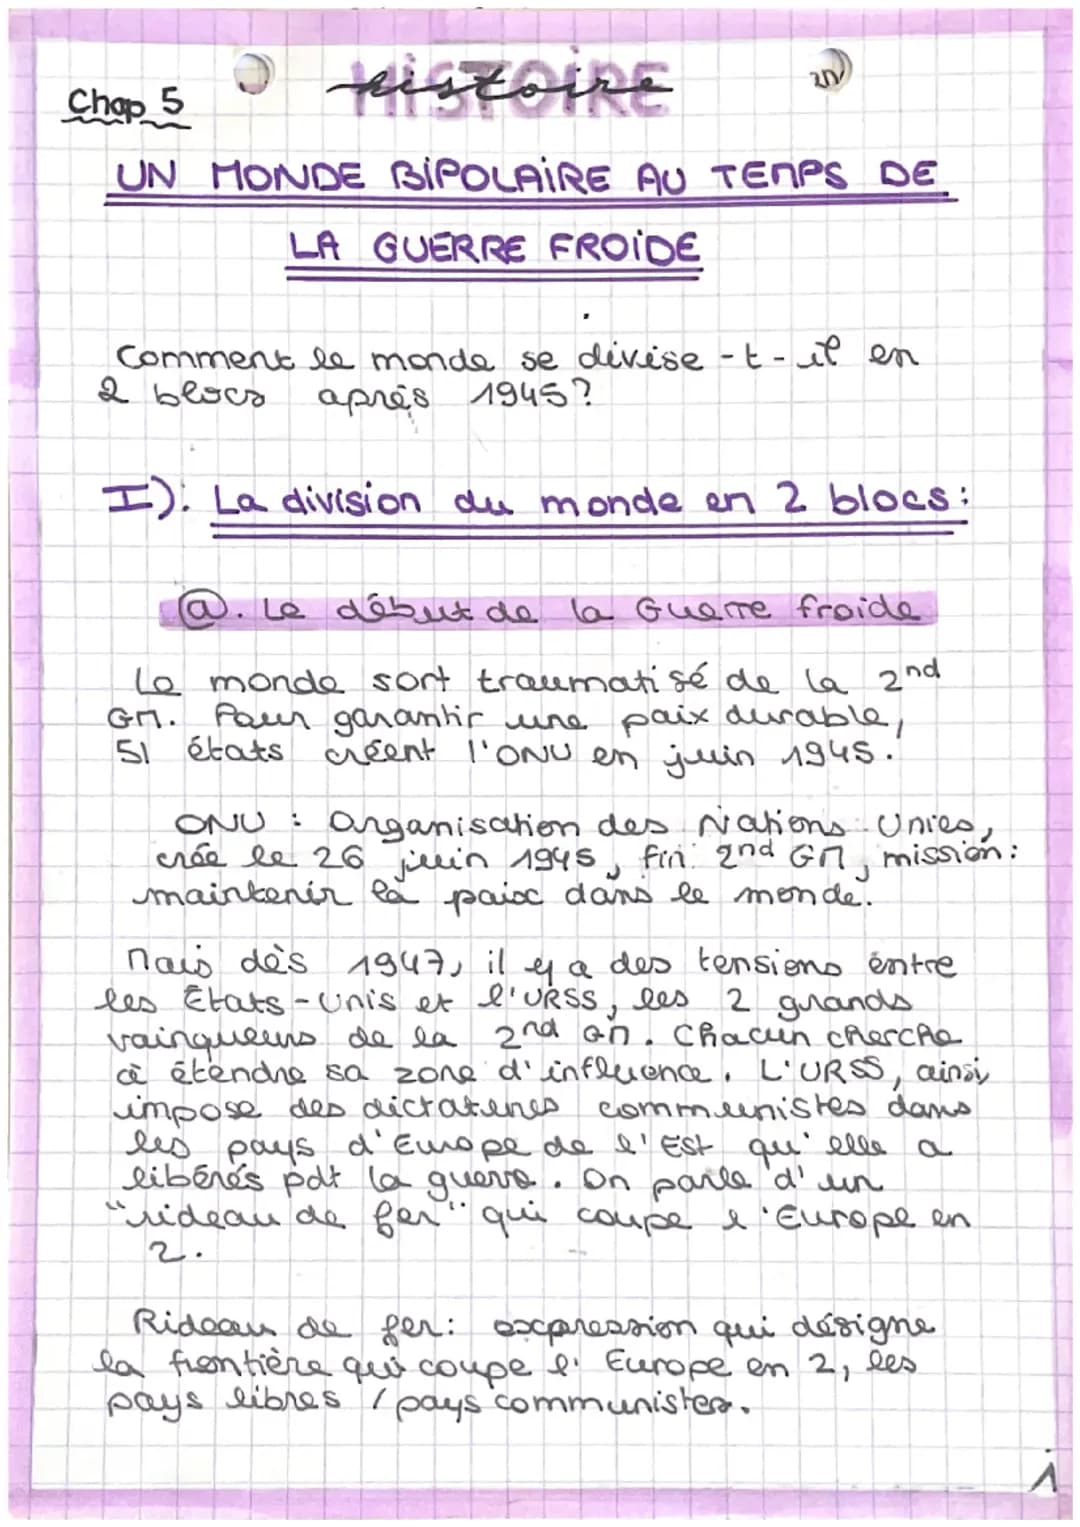 Chap 5
HiSTOiRE
histoire
UN MONDE BiPOLAiRE AU TEMPS DE
LA GUERRE FROiDE
Comment le monde se divise-t-il en
2 blocs après 1945?
I). La division du monde en 2 blocs:
@. Le début de la Guerre froide
Le monde sort traumatisé de la 2nd
GM. Pour garantir une paix durable,
51 états créent l'ONU en juin 1945.
ONU : Organisation des Nations Unies,
crée le 26 juin 1945, fin 2nd GM, mission:
maintenir la paix dans le monde.
Mais dès 1947, il y a des tensions entre
les États-Unis et l'URSS, les 2 grands
vainqueurs de la 2nd GM. Chacun cherche
à étendre sa zone d'influence. L'URSS, ainsi,
impose des dictatures communistes dans
les pays d'Europe de l'Est qu'elle a
libérés pdt la guerre. On parle d'un
"rideau de fer" qui coupe l'Europe en
2.
Rideau de fer: expression qui désigne
la frontière qui coupe l'Europe en 2, les
pays libres / pays communistes.
1